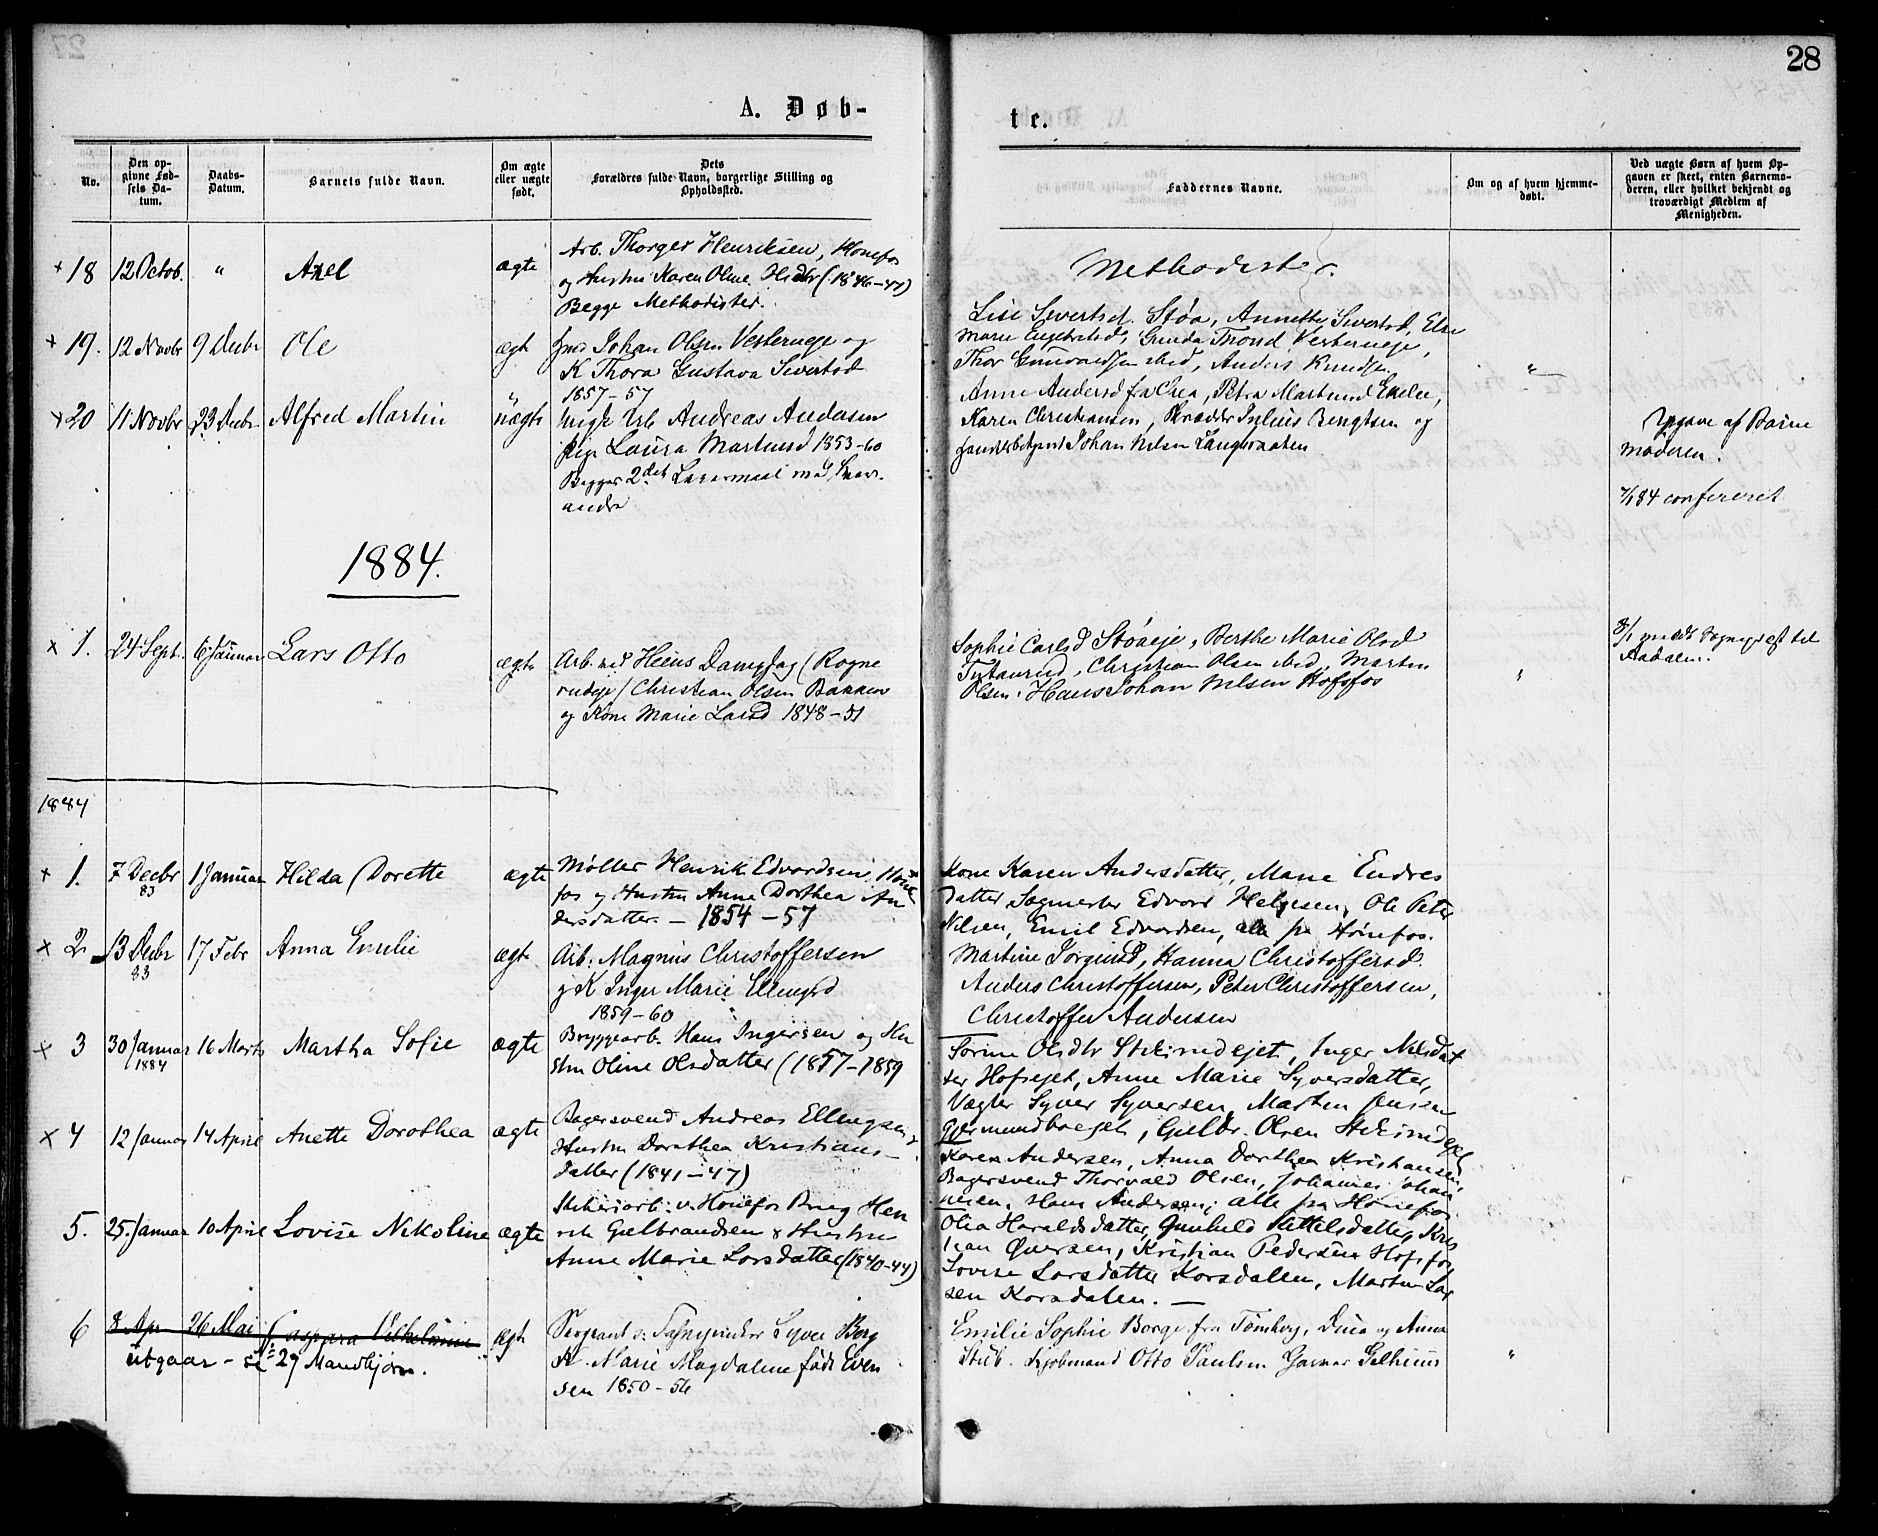 28
A. Døb-
te.
No.
Den op-
givne Fød-
sels Da-
tum.
Daabs-
Datum.
Barnets fulde Navn.
Om ægte
eller uægte
født.
Dets
Forældres fulde Navn, borgerlige Stilling og
Opholdssted.
Faddernes Navne.
Om og af hvem hjemme-
døbt.
Ved uægte Børn af hvem Op-
gaven er skeet, enten Barnemo-
deren, eller hvilket bekjendt og
troværdigt Medlem af
Menigheden.
+ 18 12 Octob. " Axel ægte
Arb. Thorger Henriksen, Hønefos
og Hustru Karen Oline (1846-47)
Begge Methodister.
Methodister.
+ 19. 12 Novbr 9 Decbr Ole ægt
Johan Olsen Vesterneje og
K Thora Gustava Sivertsd
1857-57
Lise Sivertsd. Støa, Annette Sivertsd, Else
Marie Gunda Trond Vesterneje,
Thor Anders Knudsen
"
+ 20 11 Novbr 23 Decbr Alfred Martin uægte
Ungk Arb Andreas Andersen
Pige Laura Martinsd 1853-60
Begges 2det Leiermaal med hver-
andre
Anne Andersd fra Petra Martinsd
Karen Christiansen, Skrædder Julius Bengtsen og
Johan Nilsen
Opgave af Barne
moderen.
7/1 84 confereret
1884.
x 1. 24 Sept. 6 Januar Lars Otto ægte
Arb. ved Heens Dampsag (Rogne
rudeje) Christian Olsen Bakken
og Kone Marie Larsd 1848-51
Sophie Carlsd Støaeje, Berthe Marie Olsd
Christian Olsen ibid, Martin
Olsen, Hans Johan Nilsen Hofsfos
"
8/1 til
Aadalen.
1884
+ 1. 7 Decbr 83 1 Januar Hilda Dorette ægte
Møller Henrik Edvardsen, Høne
fos og Hustru Anne Dorthea An
dersdatter. - 1854-57
Kone Karen Andersdatter, Marie Endres
datter Sagmester Edvard Helgesen, Ole Peter
Nilsen, Emil Edvardsen, alle fra Hønefos.
x 2 13 Decbr 83 17 Febr Anna Emilie ægte
Arb. Magnus Christoffersen
og K Inger Marie Ellingsd
1859-60
Martine Jørgensd, Hanna Christoffersd.
Anders Christoffersen, Peter Christoffersen,
Christoffer Andersen
x 3 30 Januar 1884 16 Marts Martha Sofie ægte
Bryggearb. Hans Ingersen og Hu
stru Oline Olsdatter (1857-1859
Sorine Olsdtr Inger Nilsdat
ter Hofsejet, Anne Marie Syversdatter,
Vægter Syver Syversen, Martin Jensen
Gulbr. Olsen
x 4 12 Januar 14 April Anette Dorothea ægte
Bagersvend Andreas Ellingsen
Hustru Dorothea Kristians-
datter (1841-47)
Karen Andersen, Anna Dorthea Kristiansen,
Bagersvend Thorvald Olsen, Johannes Johan
nesen, Hans Andersen; alle fra Hønefos.
5. 25. Januar 10 April Lovise Nikoline ægte
Sliberiarb. v. Hønefos Brug Hen
rik Gulbrandsen & Hustru
Anne Marie Larsdatter (1840-44)
Olea Haraldsdatter, Gunhild Kittelsdatter, Kris
tian Iversen, Kristian Pedersen Hofsfos
Lovise Larsdatter Korsdalen, Martin Lar
sen Korsdalen. -
6 8 Apr 26 Mai Caspara Vilhelmine ægt
udgaar - se 29 Mandkjøn.
Sergeant v. Syver Borg
K. Marie Magdalene født Even
sen 1850-56
Emilie Sophie Borge fra Tønsberg, Dina og Anna
Stub. Kjøbmand Otto Paulsen Garver Gelhuus
"